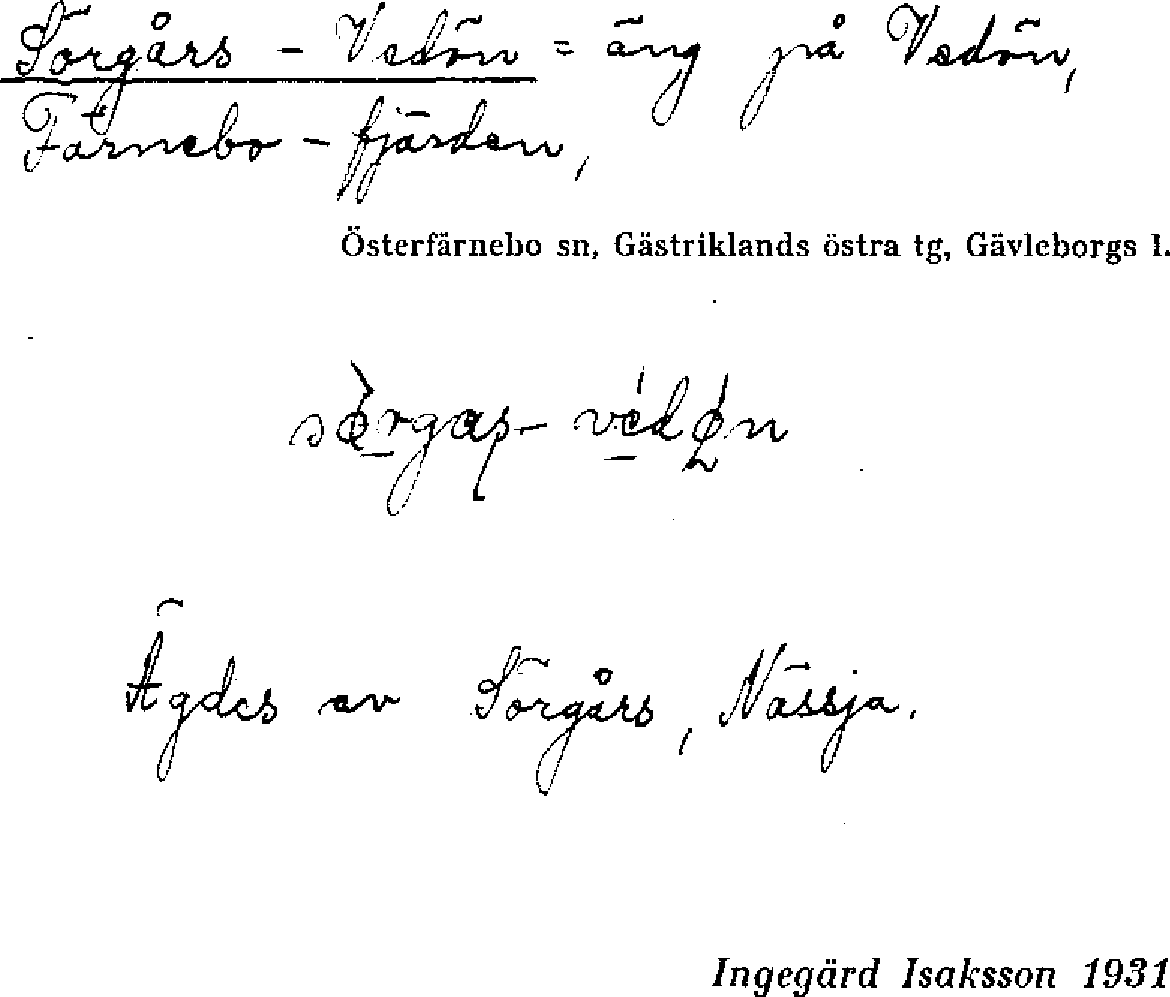 Sörgårs - Vedön = äng på Vedön,
Färnebo - fjärden,
Österfärnebo sn, Gästriklands östra tg, Gävleborgs l.
védǿn
Ägdes av Sörgårs, Nässja.
Ingegärd Isaksson 1931